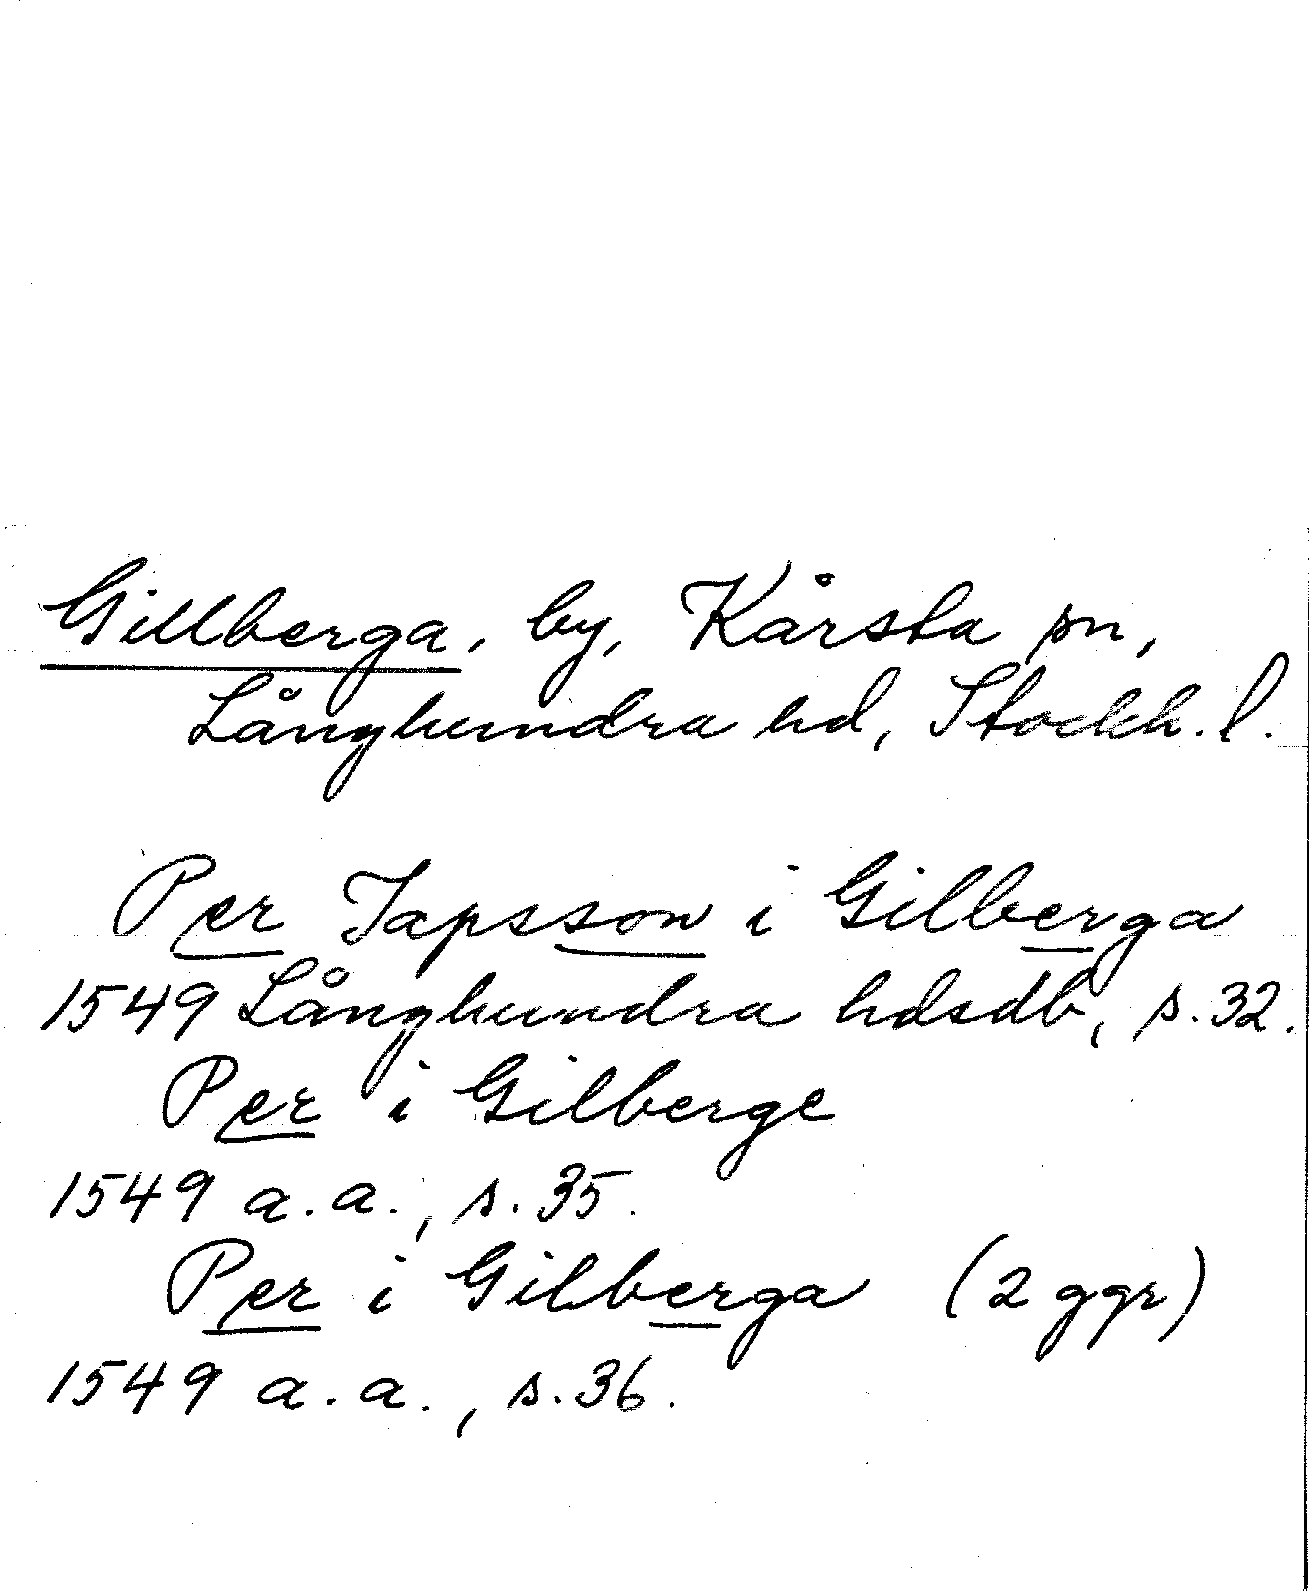 Gillberga, by, Kårsta sn,
Långhundra hd, Stockh. l.
Per Japsson i Gilberga
1549 Långhundra hdsdb, s. 32.
Per i Gilberge
1549 a.a., s. 35.
Per i Gilberga (2 ggr)
1549 a.a., s. 36.